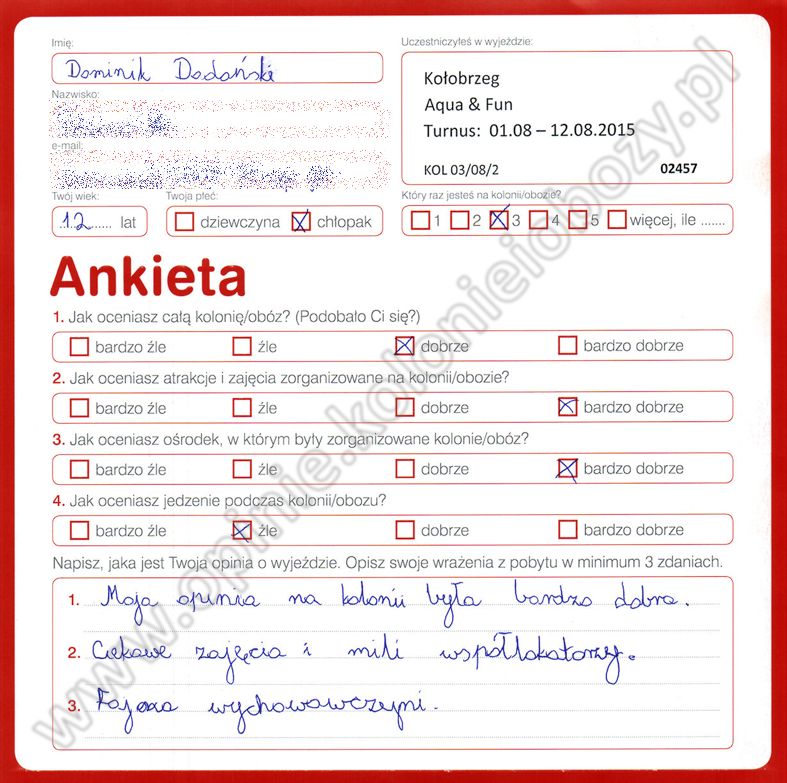 Imię:
Uczestniczyłeś w wyjeździe:
Dominik Dadański
Kołobrzeg
Nazwisko:
Aqua & Fun
Turnus: 01.08 – 12.08.2015
e-mail:
KOL 03/08/2 02457
Twój wiek: Twoja płeć: Który raz jesteś na kolonii/obozie?
12 lat dziewczyna chłopak 1 2 3 4 5 więcej, ile .......
Ankieta
1. Jak oceniasz całą kolonię/obóz? (Podobało Ci się?)
bardzo źle źle dobrze bardzo dobrze
2. Jak oceniasz atrakcje i zajęcia zorganizowane na kolonii/obozie?
bardzo źle źle dobrze bardzo dobrze
3. Jak oceniasz ośrodek, w którym były zorganizowane kolonie/obóz?
bardzo źle źle dobrze bardzo dobrze
4. Jak oceniasz jedzenie podczas kolonii/obozu?
bardzo źle źle dobrze bardzo dobrze
Napisz, jaka jest Twoja opinia o wyjeździe. Opisz swoje wrażenia z pobytu w minimum 3 zdaniach.
1. Moja opinia na kolonii była bardzo dobra.
2. Ciekawe zajęcia i mili współlokatorzy.
3. Fajna wychowawczyni.
www.opinie.kolonieiobozy.pl